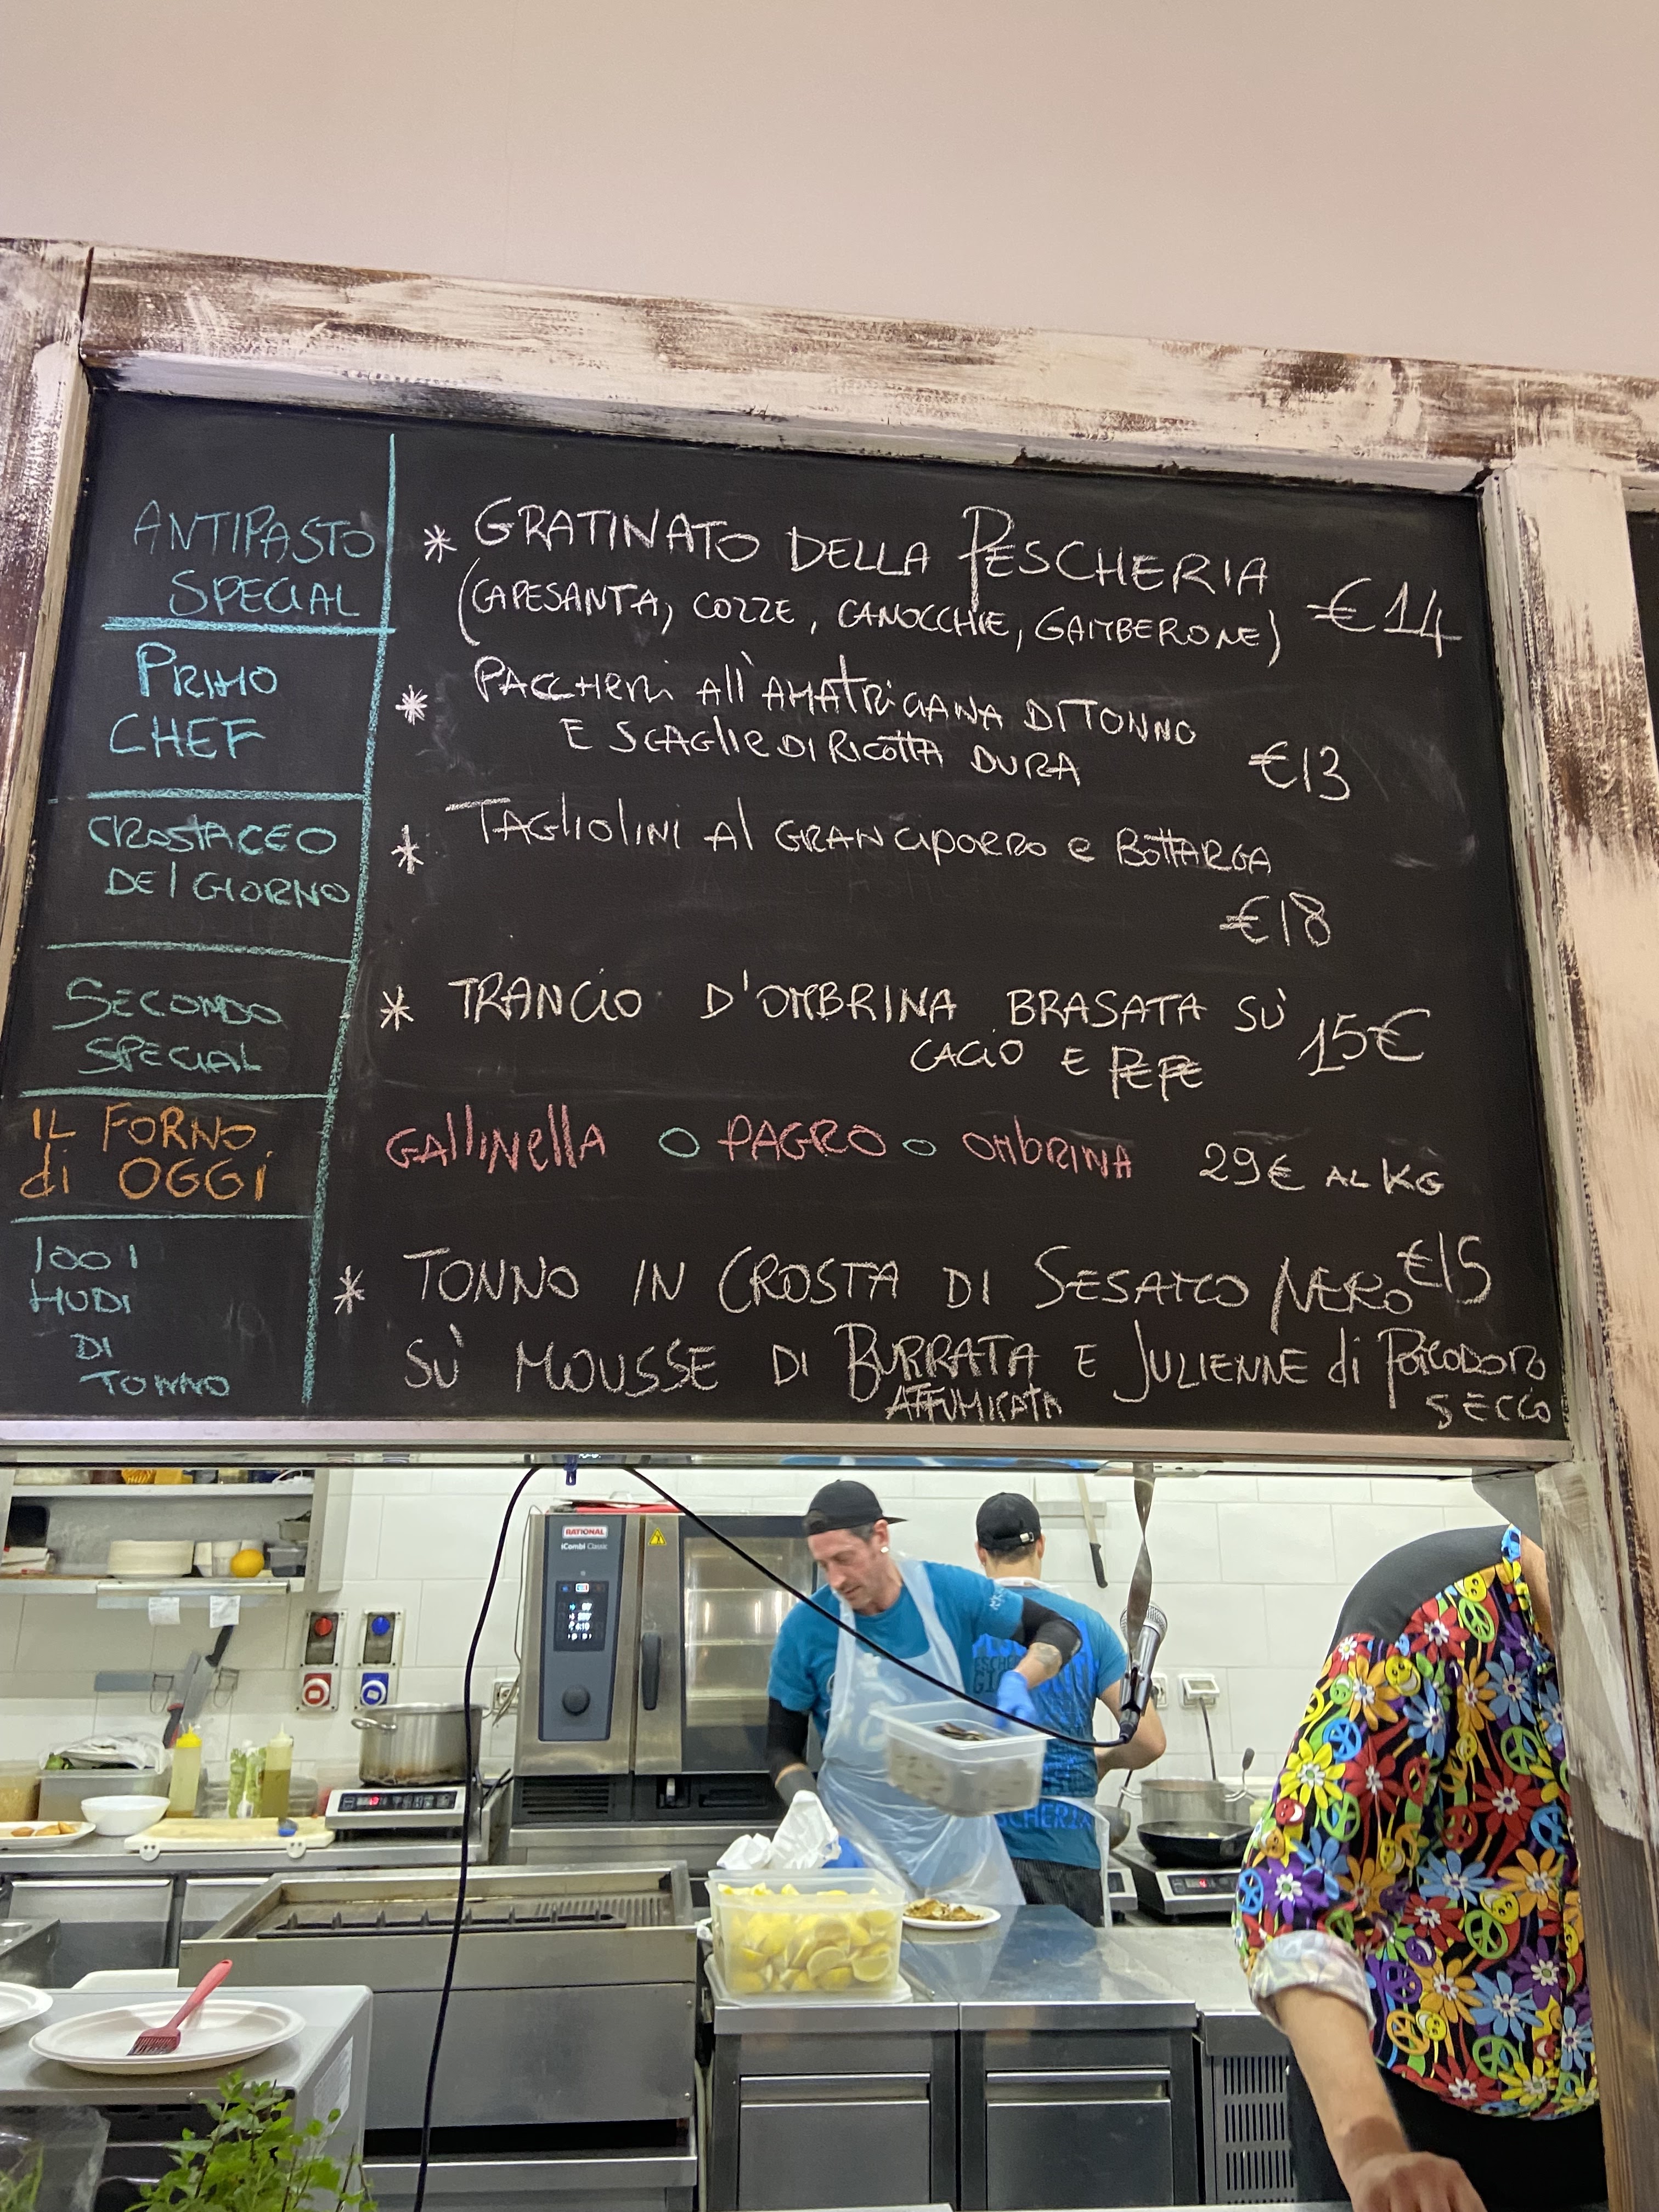 ANTIPASTO
SPECIAL
* GRATINATO DELLA PESCHERIA
(CAPESANTA, COZZE, CANOCCHIE, GAMBERONE) €14
PRIMO
CHEF
* PACCHERI All'AMATRICIANA DI TONNO
E SCAGLIE DI RICOTTA DURA €13
CROSTACEO
DEl GIORNO
* TAGLIOLINI Al GRANCIPORRO e BOTTARGA
€18
SECONDO
SPECIAL
* TRANCIO D'OMBRINA BRASATA SÙ
CACIO E PEPE 15€
IL FORNO
di OGGi
GAllINellA O PAGRO O OMbRINA 29€ AL KG
1001
MODI
DI
TONNO
* TONNO IN CROSTA DI SESAMO NERO €15
SÙ MOUSSE DI BURRATA E JULIENNE di POMODORO
AFFUMICATA SECCO
RATIONAL
iCombi Classic